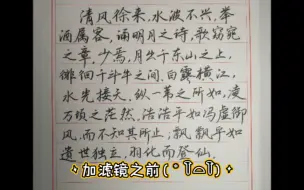 清风徐来,水波不兴,举
酒属客,诵明月之诗,歌窈窕
之章,少焉,月出于东山之上,
徘徊于斗牛之间,白露横江,
水光接天,纵一苇之所如,凌
万顷之茫然,浩浩乎如冯虚御
风,而不知其所止;飘飘乎如
遗世独立,羽化而登仙。
加滤镜之前(˚ T⌓T)